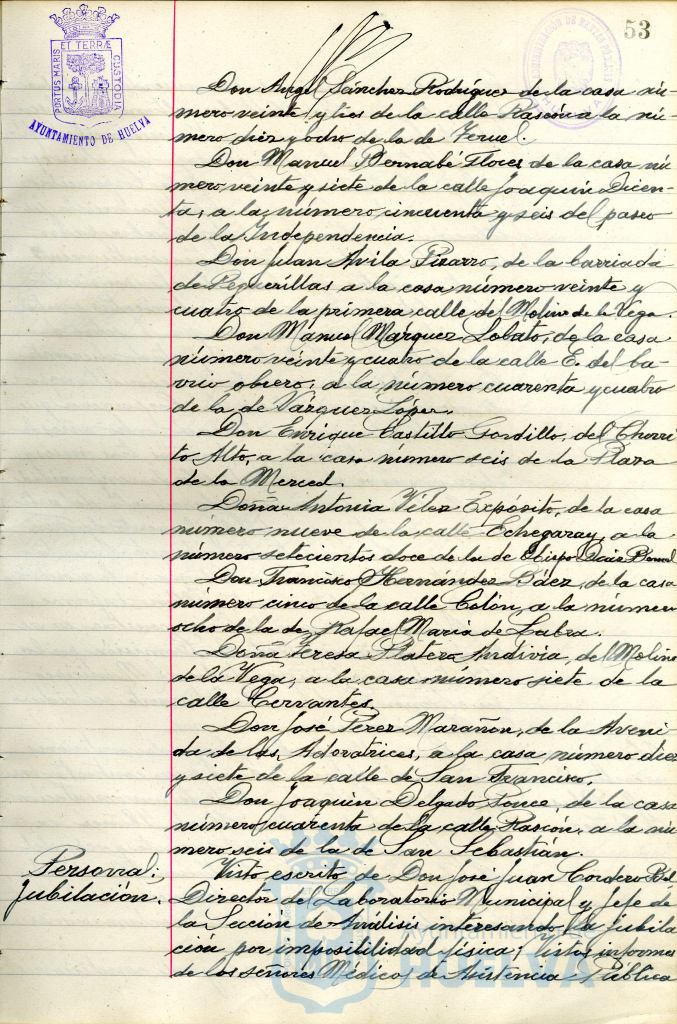 53
PORTUS MARIS ET TERRÆ CUSTODIA
AYUNTAMIENTO DE HUELVA
Don Angel Sánchez Rodríguez de la casa nú-
mero veinte y tres de la calle Rascón a la nú-
mero diez y ocho de la de Teruel.
Don Manuel Bernabé Flores de la casa nú
mero veinte y siete de la calle Joaquín Dicen-
ta, a la número cincuenta y seis del paseo
de la Independencia.
Don Juan Avila Pizarro, de la barriada
de Peguerillas a la casa número veinte y
cuatro de la primera calle del Molino de la Vega.
Don Manuel Márquez Lobato, de la casa
número veinte y cuatro de la calle E. del ba-
rrio obrero, a la número cuarenta y cuatro
de la de Vázquez López.
Don Enrique Castillo Gordillo, del Chorri
to Alto, a la casa número seis de la Plaza
de la Merced.
Doña Antonia Vélez Expósito, de la casa
número nueve de la calle Echegaray, a la
número setecientos doce de la de Obispo Díaz
Don Francisco Hernández Báez, de la casa
número cinco de la calle Colón, a la número
ocho de la de Rafael María de Labra.
Doña Teresa Platero Andivia, del Molino
de la Vega, a la casa número siete de la
calle Cervantes.
Don José Pérez Marañon, de la Aveni
da de las Adoratrices, a la casa número diez
y siete de la calle de San Francisco.
Don Joaquín Delgado Ponce, de la casa
número cuarenta de la calle Rascón, a la nú
mero seis de la de San Sebastián.
Personal;
Jubilación.
Visto escrito de Don José Juan Cordero
Director del Laboratorio Municipal y Jefe de
la Sección de Análisis interesando la jubila
ción por imposibilidad física; Vistos informes
de los señores Médicos de Asistencia Pública
HUELVA